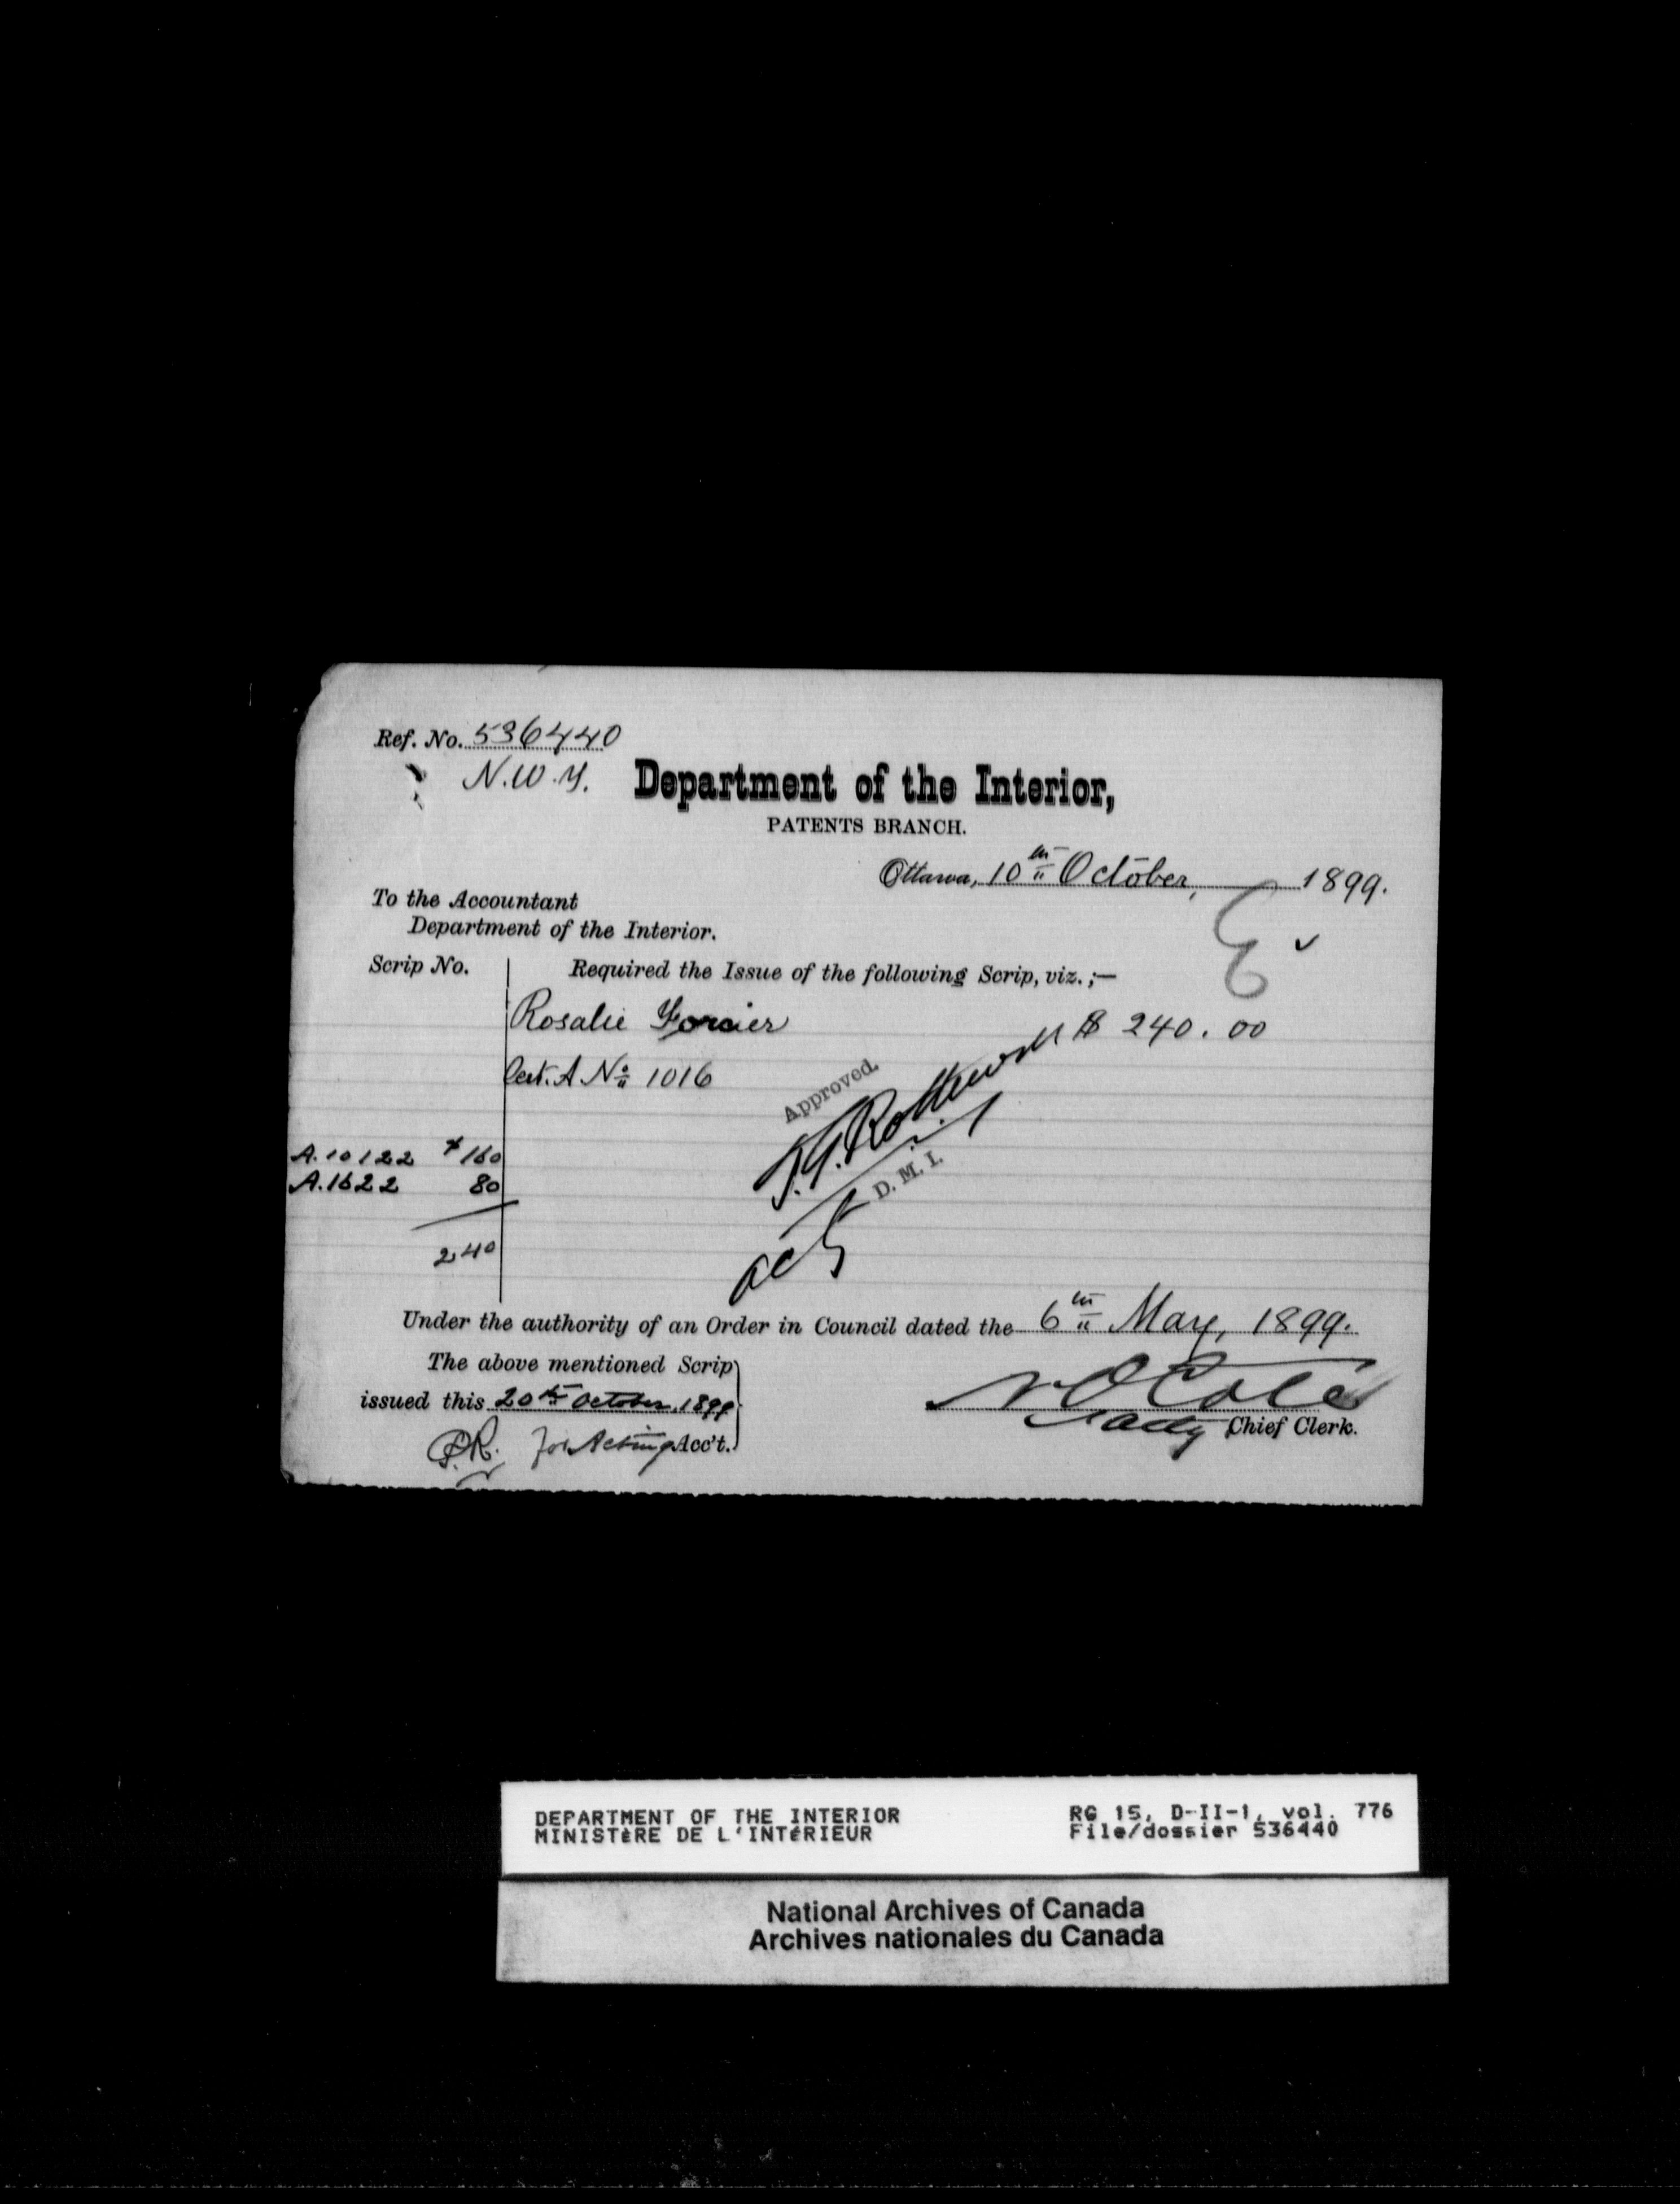 Ref. No. 536440
N.W.T.
Department of the Interior,
PATENTS BRANCH.
Ottawa, 10th October, 1899.
To the Accountant
Department of the Interior.
Scrip No.
Required the Issue of the following Scrip, viz.;—
Rosalie Forcier $ 240.00
Cert. A No 1016
Approved.
D. M. I.
act
A.10122 $160
A.1622 80
240
Under the authority of an Order in Council dated the 6th May, 1899.
The above mentioned Scrip
issued this 20th October, 1899
P.R. for Acting Acc't.
N O Coté
actg Chief Clerk.
DEPARTMENT OF THE INTERIOR
MINISTèRE DE L'INTéRIEUR
RG 15, D-II-1, vol. 776
File/dossier 536440
National Archives of Canada
Archives nationales du Canada